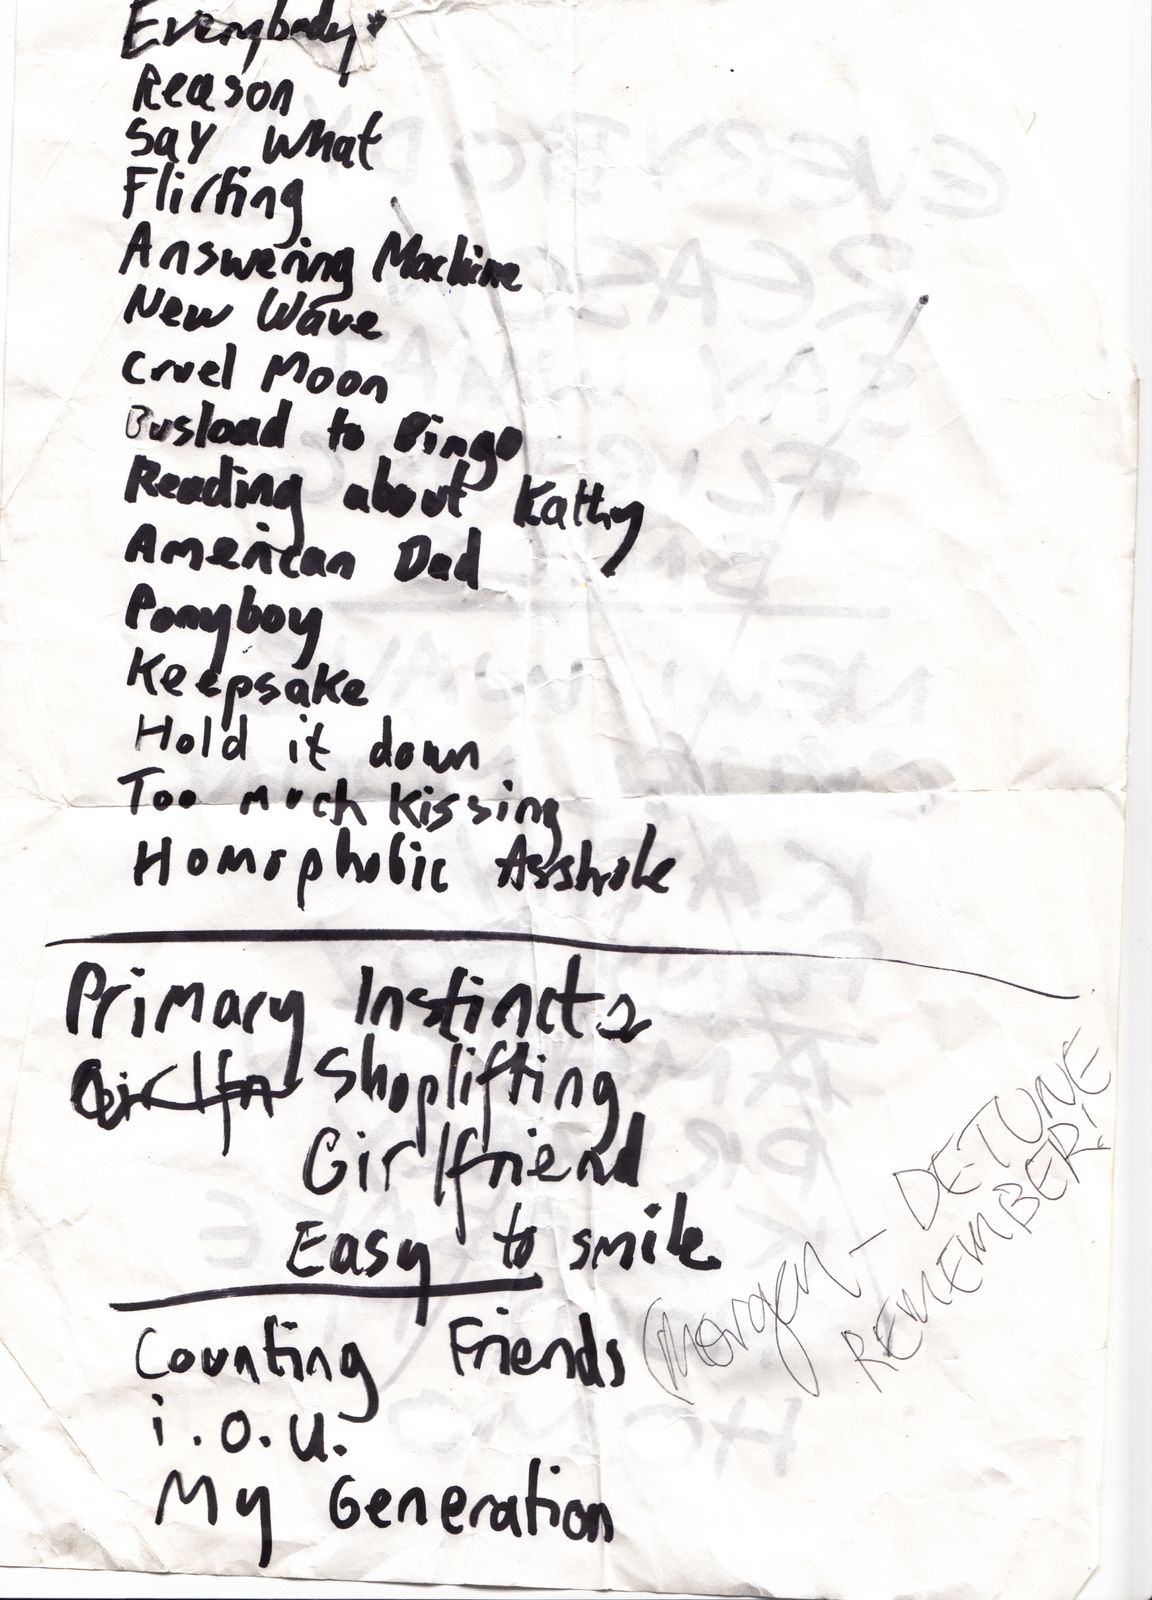 Everybody*
Reason
Say What
Flirting
Answering Machine
New Wave
Cruel Moon
Busload to Bingo
Reading about Kathy
American Dad
Ponyboy
Keepsake
Hold it down
Too much Kissing
Homophobic Asshole
Primary Instincts
Shoplifting
Girlfriend
Easy to smile
Counting Friends
i.o.u.
My Generation
(Morgen - DETUNE
REMEMBER!
EVERYBODY
REASON
SAY WHAT
NEW WAVE
HOMO